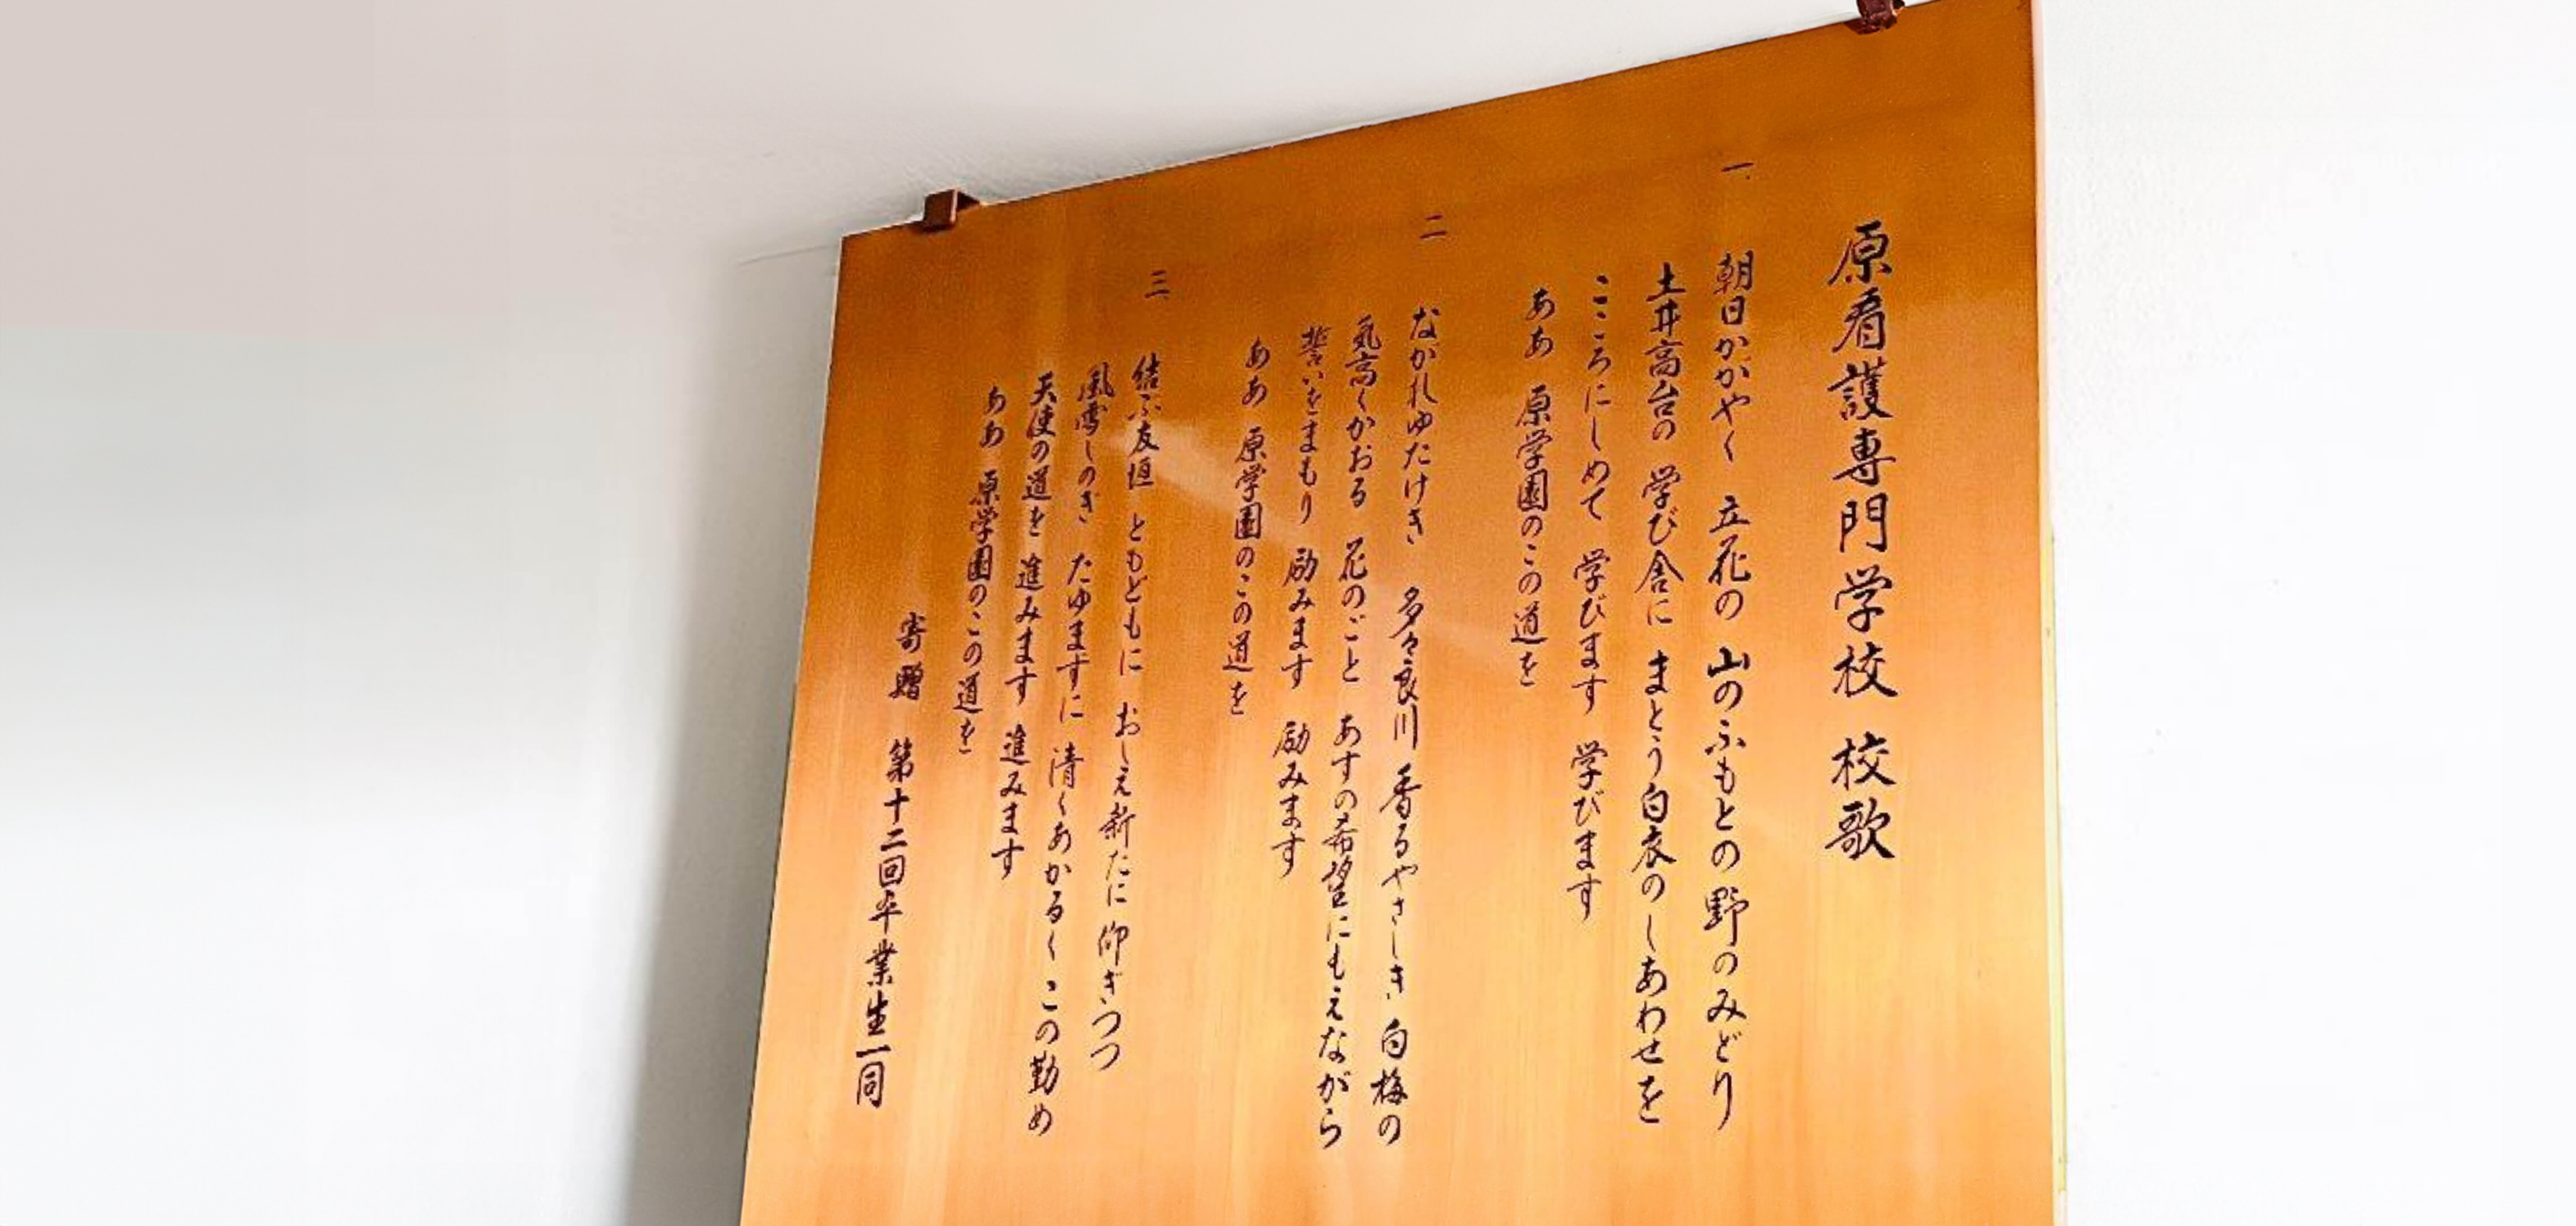 原看護専門学校 校歌
一、
朝日かがやく 立花の 山のふもとの 野のみどり
土井高台の 学び舎に まとう白衣の しあわせを
こころにしめて 学びます 学びます
ああ 原学園のこの道を
二
ながれゆたけき 多々良川 香るやさしき 白梅の
気高くかおる 花のごと あすの希望にもえながら
誓いをまもり 励みます 励みます
ああ 原学園のこの道を
三
結ぶ友垣 ともどもに おしえ新たに 仰ぎつつ
風雪しのぎ たゆまずに 清くあかるく この勤め
天使の道を 進みます 進みます
ああ 原学園のこの道を
寄贈 第十二回卒業生一同